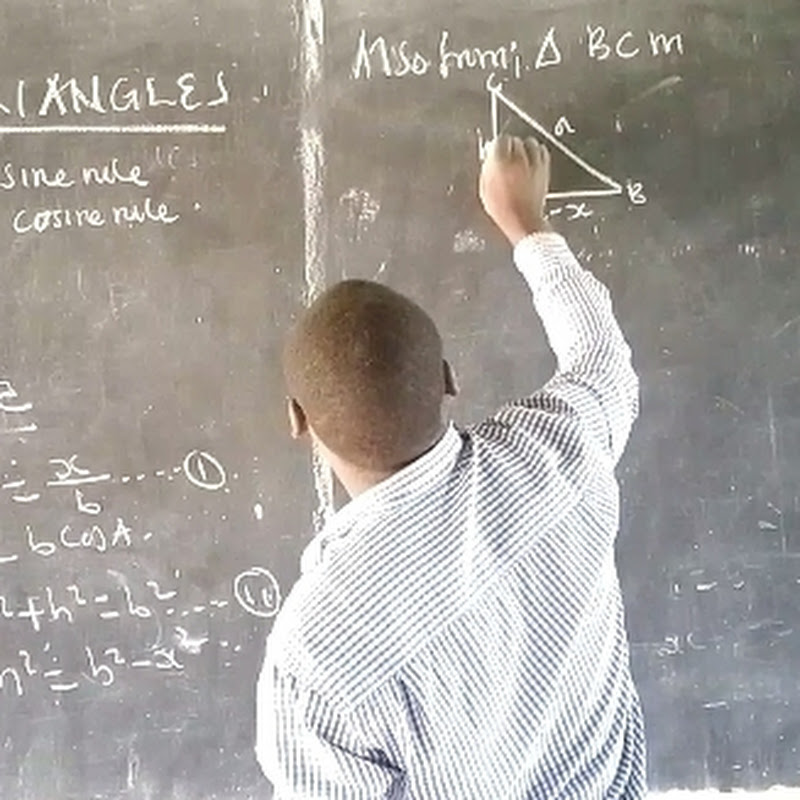 IANGLES
sine rule
cosine rule
= x/b ..... (1)
b cos A.
² + h² = b² .... (11)
h² = b² - x²
Also from; Δ BCM
C
a
h
B
- x